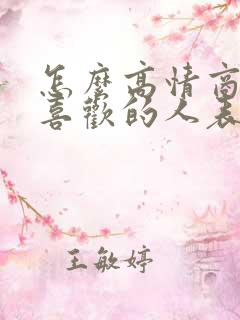 怎麽高情商
喜歡的人表
王敏婷